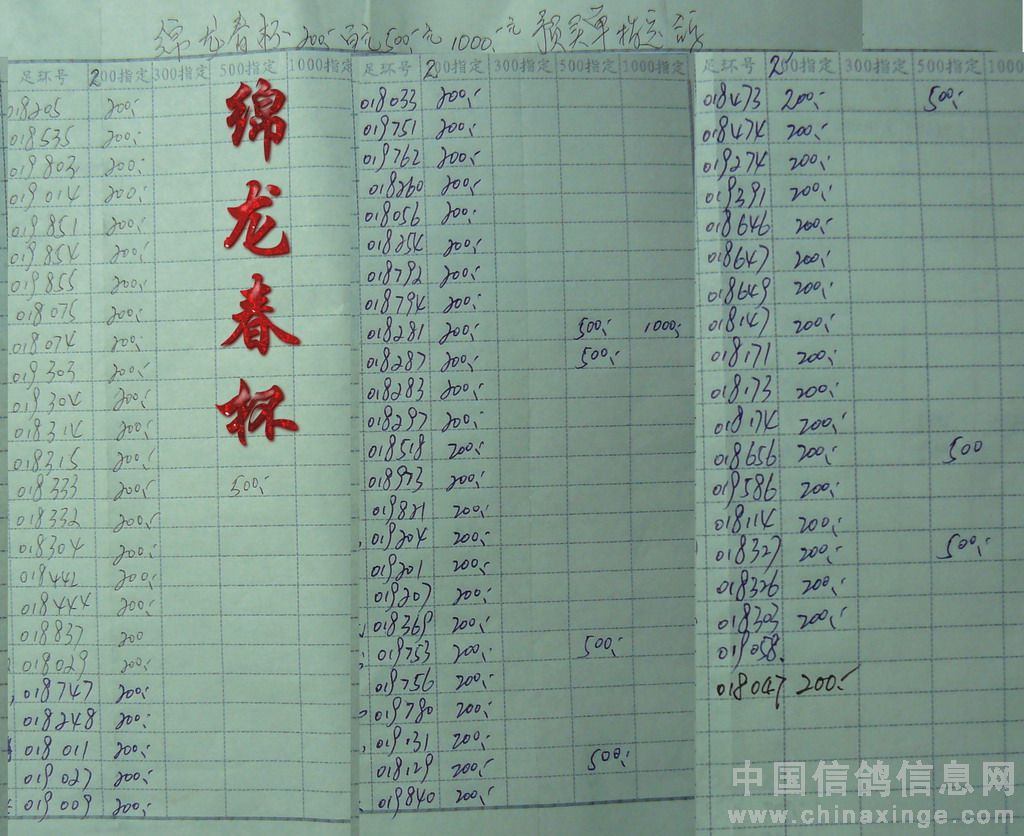 绵龙春杯200.-百元500.-元1000.-元预买单指定
足环号 200指定 300指定 500指定 1000指定
018205 200.-
018535 200.-
019803 200.-
019014 200.-
019851 200.-
019854 200.-
019855 200.-
018075 200.-
018074 200.-
019303 200.-
019304 200.-
018314 200.-
018315 200.-
018333 200.- 500.-
018332 200.-
018304 200.-
018442 200.-
018444 200.-
018837 200
018029 200.-
018747 200.-
018248 200.-
018011 200.-
019027 200.-
019009 200.-
绵龙春杯
足环号 200指定 300指定 500指定 1000指定
018033 200.-
019751 200.-
019762 200.-
018260 200.-
018056 200.-
018254 200.-
018792 200.-
018794 200.-
018281 200.- 500.- 1000.-
018287 200.- 500.-
018283 200.-
018297 200.-
018518 200.-
018973 200.-
019821 200.-
019204 200.-
019201 200.-
019207 200.-
018369 200.-
019753 200.- 500.-
019756 200.-
019780 200.-
019131 200.-
018129 200.- 500.-
019840 200.-
足环号 200指定 300指定 500指定 1000
018473 200.- 500.-
018474 200.-
019274 200.-
019391 200.-
018646 200.-
018647 200.-
018649 200.-
018147 200.-
018171 200.-
018173 200.-
018174 200.-
018656 200.- 500
019586 200.-
018114 200.-
018327 200.- 500.-
018326 200.-
018303 200.-
019058
018047 200.-
中国信鸽信息网
www.chinaxinge.com